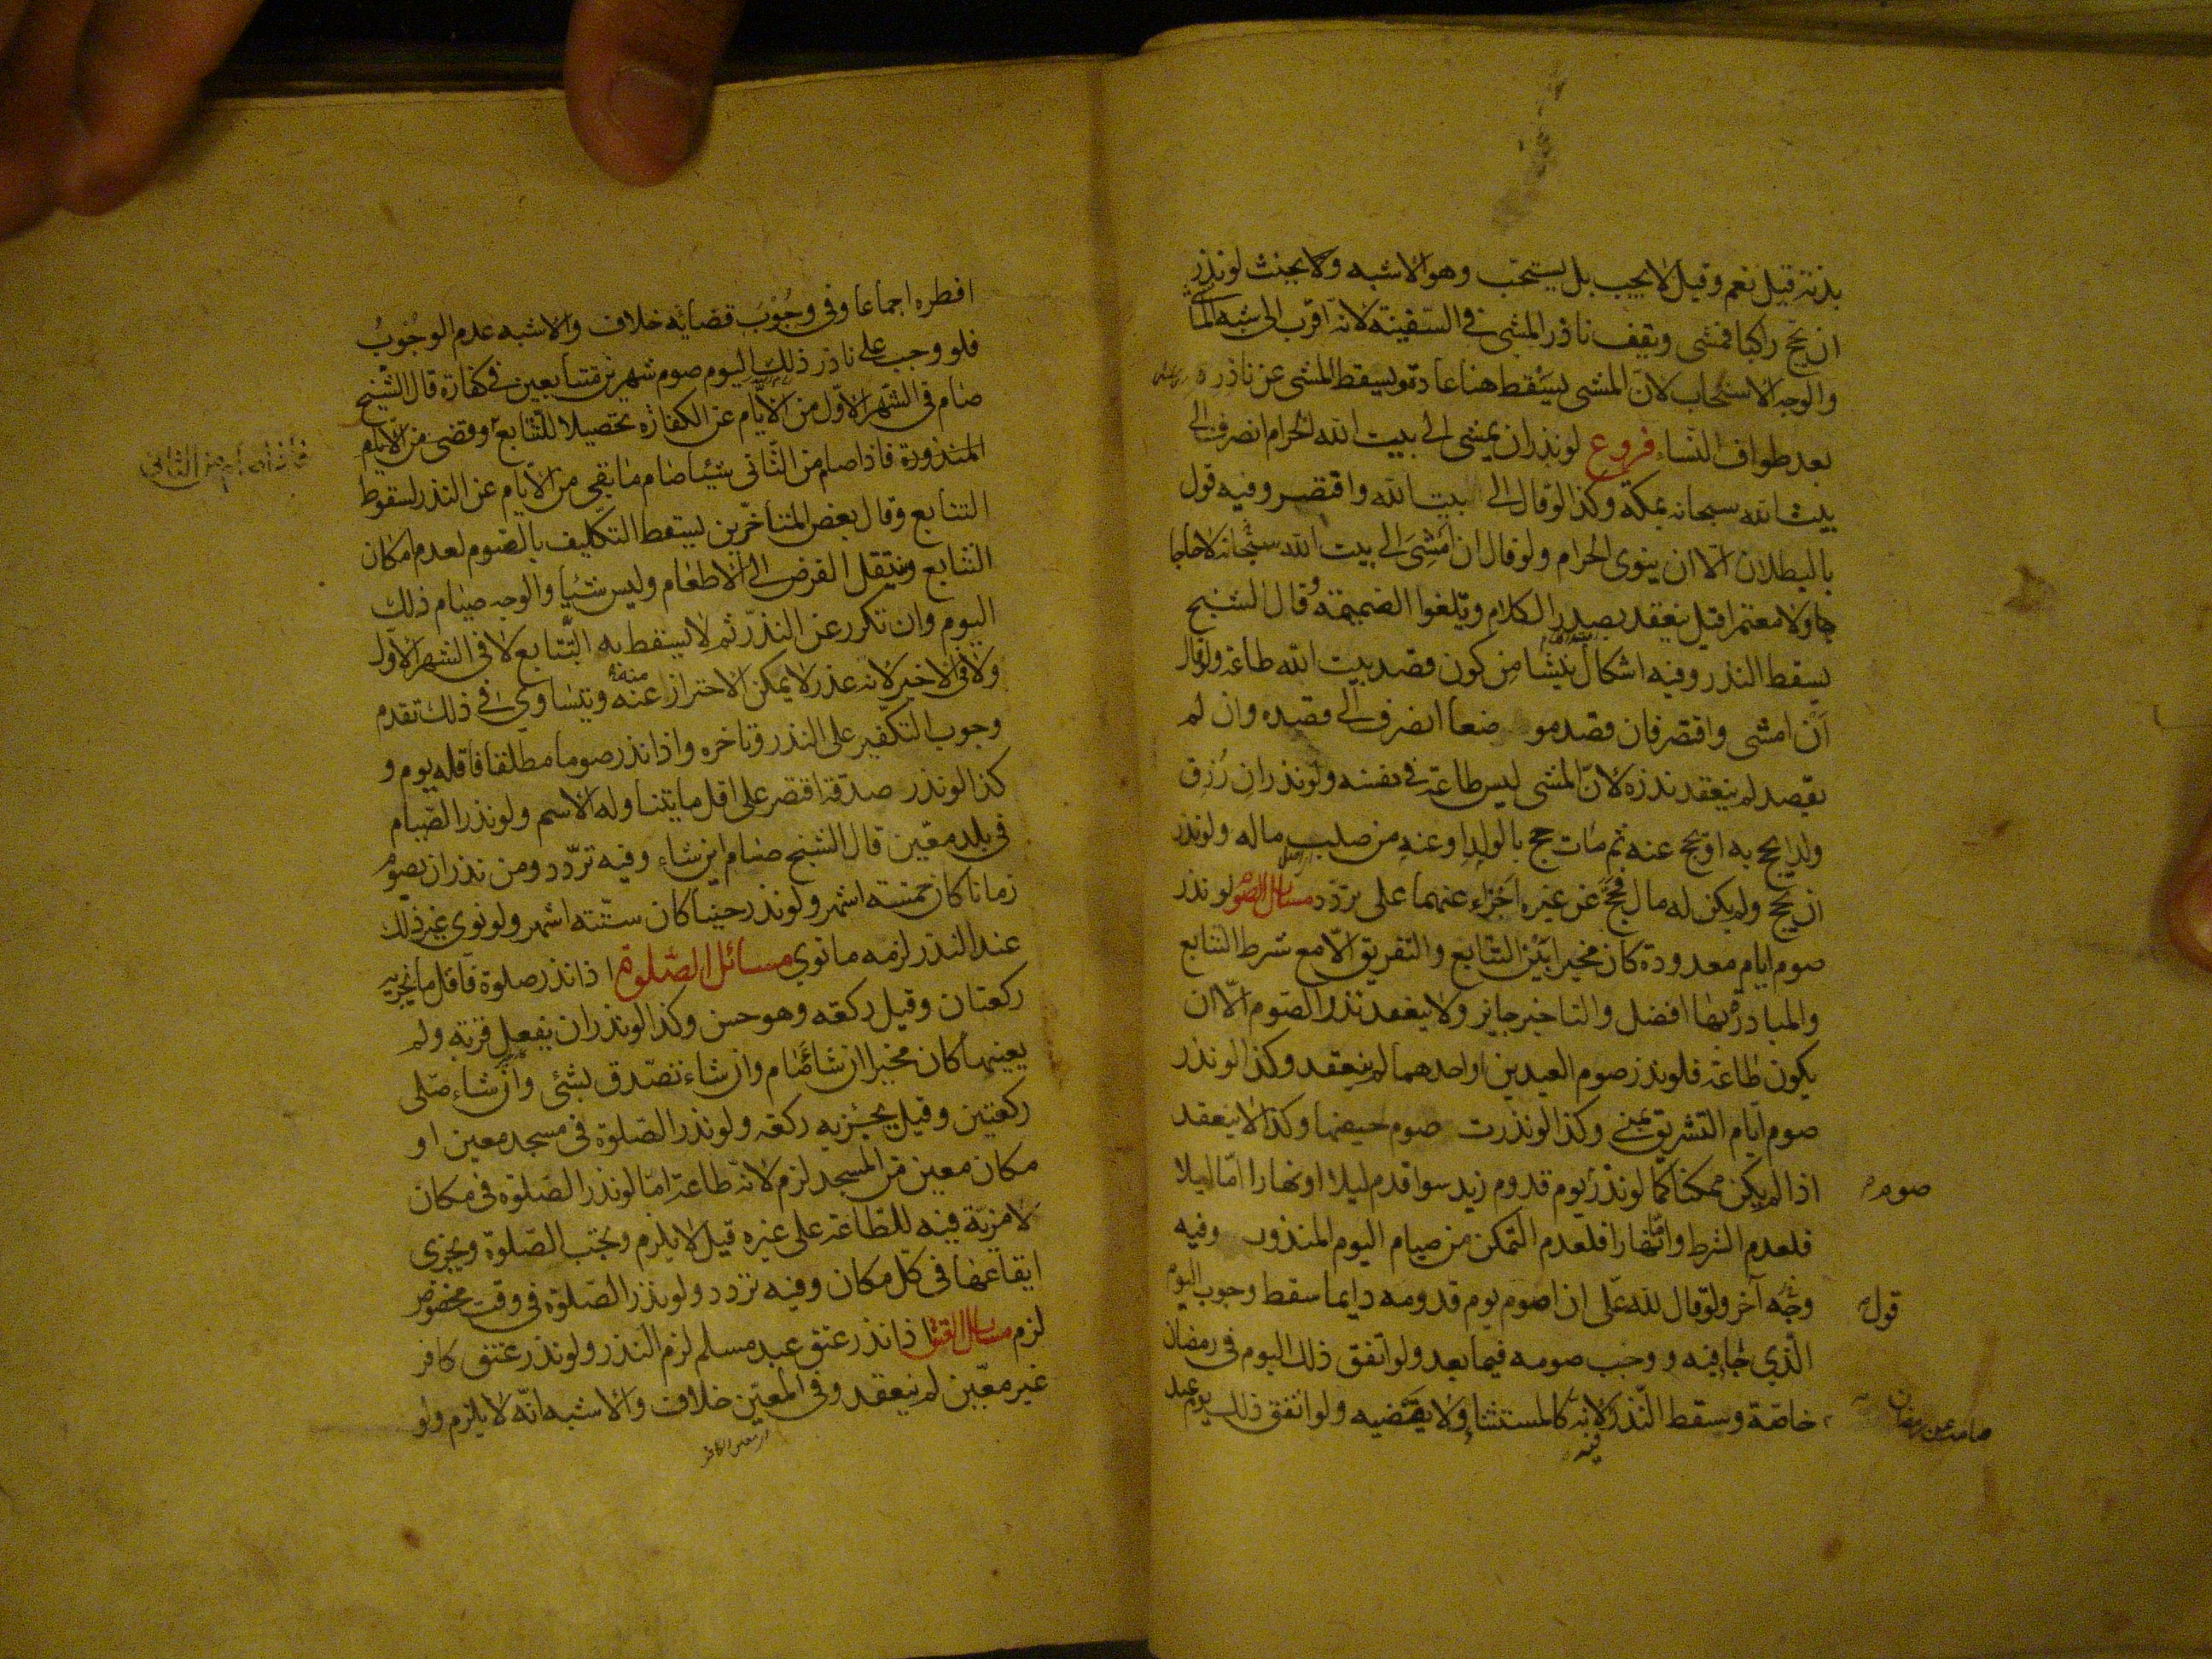 بدنة قيل نعم وقيل لا يجب بل يستحب وهو الاشبه ولا يحنث لو نذر
ان يحج راكبا فمشى ويقف ناذر المشى في السفينة لانه اقرب الى شبه الماشى
والوجه الاستحباب لان المشى يسقط هنا عادة ويسقط المشى عن ناذره
بعد طواف النساء فروع لو نذر ان يمشى الى بيت الله الحرام انصرف الى
بيت الله سبحانه بمكة وكذا لو قال الى بيت الله واقتصر وفيه قول
بالبطلان الا ان ينوى الحرام ولو قال ان امشى الى بيت الله سبحانه لا حاجا
ولا معتمرا قيل ينعقد بصدر الكلام وتلغوا الضميمة وقال الشيخ
يسقط النذر وفيه اشكال ينشا من كون قصد بيت الله طاعة ولو قال
ان امشى واقتصر فان قصد موضعا انصرف الى قصده وان لم
يقصد لم ينعقد نذره لان المشى ليس طاعة في نفسه ولو نذر ان رزق
ولدا يحج به او يحج عنه ثم مات حج بالولد او عنه من صلب ماله ولو نذر
ان يحج ولم يكن له مال فحج عن غيره اجزاء عنهما على تردد مسائل الصوم لو نذر
صوم ايام معدودة كان مخيرا بين التتابع والتفريق الا مع شرط التتابع
والمبادرة بها افضل والتاخير جايز ولا ينعقد نذر الصوم الا ان
يكون طاعة فلو نذر صوم العيدين او احدهما لم ينعقد وكذا لو نذر
صوم ايام التشريق بمنى وكذا لو نذرت صوم حيضها وكذا لا ينعقد
اذا لم يكن ممكنا كما لو نذر يوم قدوم زيد سوا قدم ليلا او نهارا اما ليلا
صوم
فلعدم الشرط واما نهارا فلعدم التمكن من صيام اليوم المنذور وفيه
وجه آخر ولو قال لله على ان اصوم يوم قدومه دايما سقط وجوب اليوم
قول
الذي جا فيه ووجب صومه فيما بعد ولو اتفق ذلك اليوم في رمضان
خاصة وسقط النذر لانه كالمستثنا ولا يقضيه ولو اتفق ذلك يوم عيد
صامه عن رمضان
فيه
افطره اجماعا وفى وجوب قضائه خلاف والاشبه عدم الوجوب
فلو وجب على ناذر ذلك اليوم صوم شهرين متتابعين في كفارة قال الشيخ
صام في الشهر الاول من الايام عن الكفارة تحصيلا للتتابع وقضى من الايام
المنذورة فاذا صام من الثانى شيئا صام ما بقى من الايام عن النذر لسقوط
التتابع وقال بعض المتاخرين يسقط التكليف بالصوم لعدم امكان
التتابع وينتقل الفرض الى الاطعام وليس شيئا والوجه صيام ذلك
اليوم وان تكرر عن النذر ثم لا يسقط به التتابع لا في الشهر الاول
ولا في الاخير لانه عذر لا يمكن الاحتراز عنه ويتساوى في ذلك تقدم
منه
وجوب التكفير على النذر وتاخره واذا نذر صوما مطلقا فاقله يوم و
كذا لو نذر صدقة اقتصر على اقل ما يتناوله الاسم ولو نذر الصيام
في بلد معين قال الشيخ صام اين شاء وفيه تردد ومن نذر ان يصوم
زمانا كان خمسة اشهر ولو نذر حينا كان ستة اشهر ولو نوى غير ذلك
عند النذر لزمه ما نوى مسائل الصلوة اذا نذر صلوة فاقل ما يجزيه
ركعتان وقيل ركعة وهو حسن وكذا لو نذر ان يفعل قربة ولم
يعينها كان مخيرا ان شاء صام وان شاء تصدق بشئ وان شاء صلى
ركعتين وقيل يجزيه ركعة ولو نذر الصلوة في مسجد معين او
مكان معين من المسجد لزم لانه طاعة اما لو نذر الصلوة في مكان
لا مزية فيه للطاعة على غيره قيل لا يلزم ويجب الصلوة ويجزى
ايقاعها في كل مكان وفيه تردد ولو نذر الصلوة في وقت مخصوص
لزم مسائل العتق اذا نذر عتق عبد مسلم لزم النذر ولو نذر عتق كافر
غير معين لم ينعقد وفى المعين خلاف والاشبه انه لا يلزم ولو